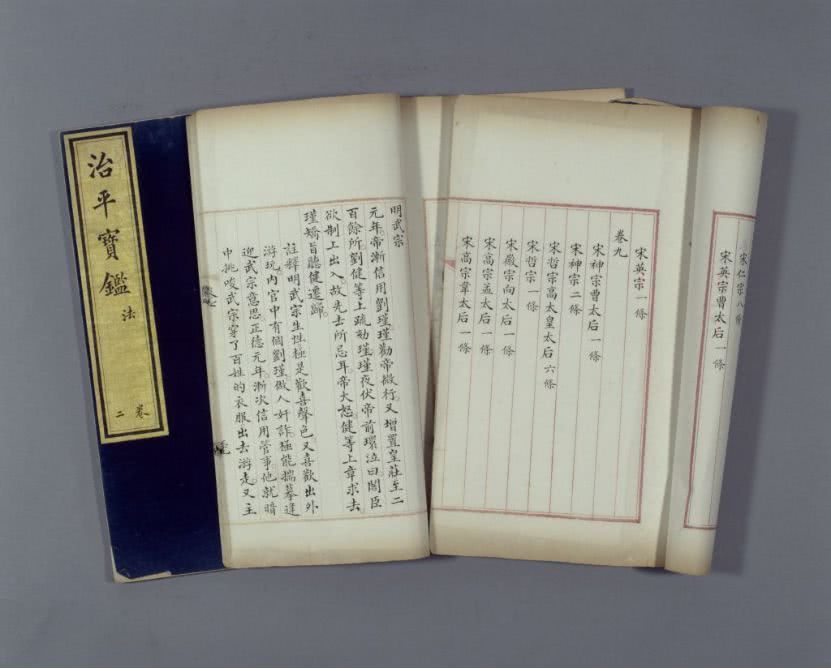 治平寶鑑 法
卷二
明武宗
元年帝漸信用劉瑾瑾勸帝微行又增置皇莊至二
百餘所劉健等上疏劾瑾瑾夜伏帝前環泣曰閣臣
欲制上出入故先去所忌耳帝大怒健等上章求去
瑾矯旨聽健遷歸
註釋明武宗生性極是歡喜聲色又喜歡出外
游玩內官中有個劉瑾做人奸詐極能揣摹逢
迎武宗意思正德元年漸次信用管事他就暗
中挑唆武宗穿了百姓的衣服出去游走又主
宋仁宗八條
宋英宗曹太后一條
宋英宗一條
卷九
宋神宗曹太后一條
宋神宗二條
宋哲宗高太皇太后六條
宋哲宗一條
宋徽宗向太后一條
宋高宗孟太后一條
宋高宗韋太后一條